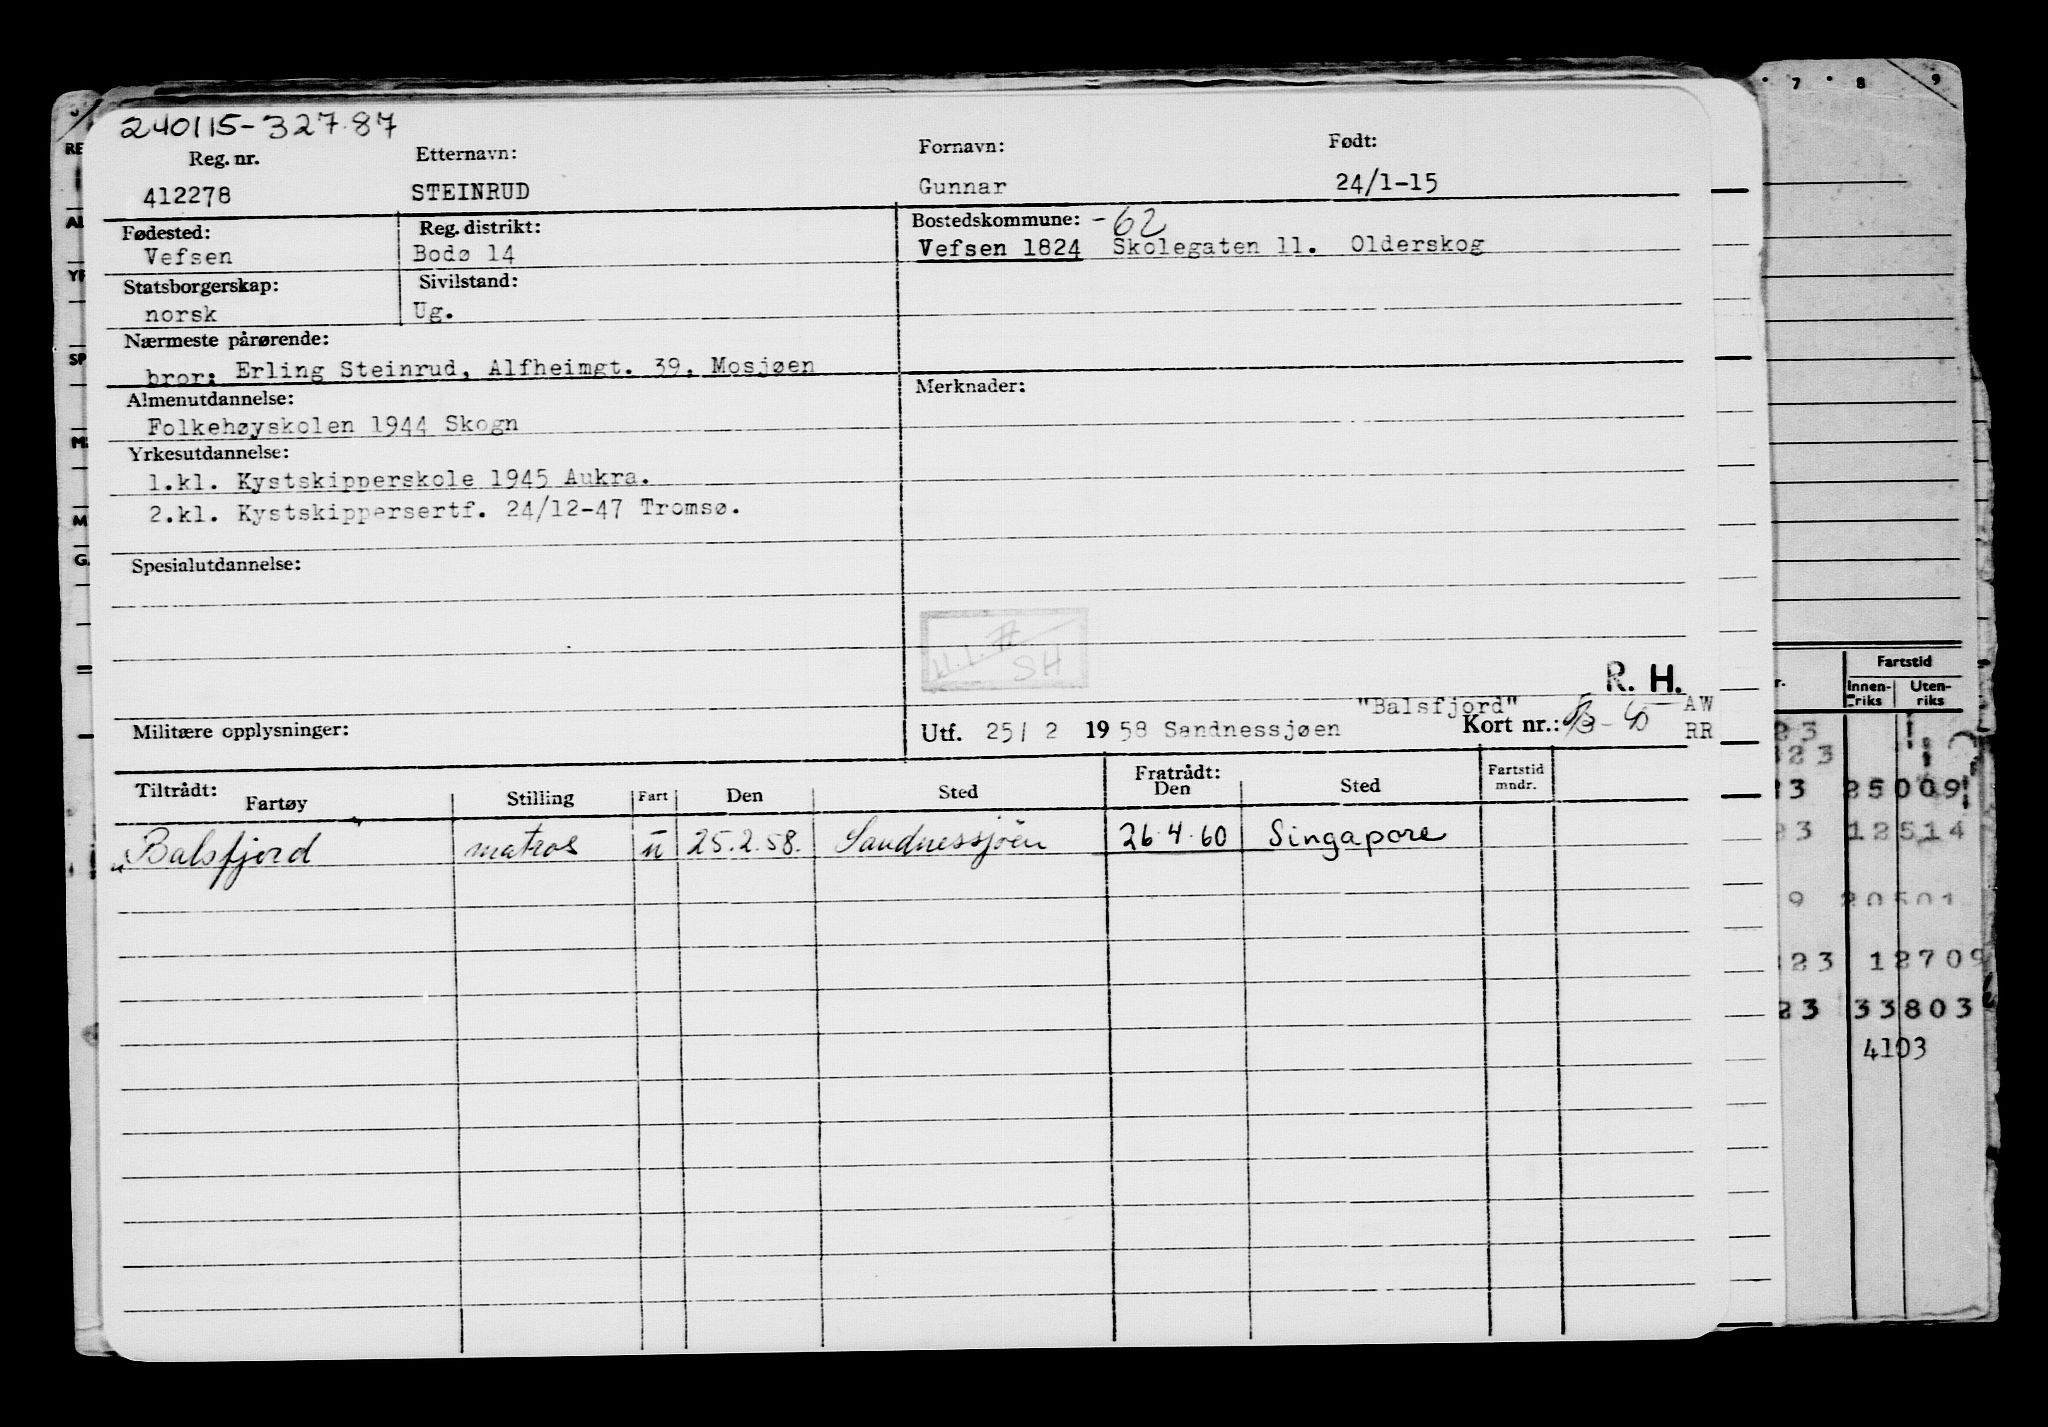 240115-327.87
Reg. nr. Etternavn: Fornavn: Født:
412278 STEINRUD Gunnar 24/1-15
Fødested: Reg. distrikt: Bostedskommune: -62
Vefsen Bodø 14 Vefsen 1824 Skolegaten 11. Olderskog
Statsborgerskap: Sivilstand:
norsk Ug.
Nærmeste pårørende:
bror: Erling Steinrud, Alfheimgt. 39, Mosjøen
Almenutdannelse: Merknader:
Folkehøyskolen 1944 Skogn
Yrkesutdannelse:
1.kl. Kystskipperskole 1945 Aukra.
2.kl. Kystskippersertf. 24/12-47 Tromsø.
Spesialutdannelse:
SH
R. H.
"Balsfjord" AW
Militære opplysninger: Utf. 25/ 2 1958 Sandnessjøen Kort nr.: RR
Tiltrådt: Fratrådt:
Fartøy Stilling Fart Den Sted Den Sted Fartstid mndr.
"Balsfjord" matros u 25.2.58. Sandnessjøen 26.4.60 Singapore
7 8 9
Fartstid
Innen-riks Uten-riks
23
323
3 25009
23 12514
9 20501
323 12709
23 33803
4103